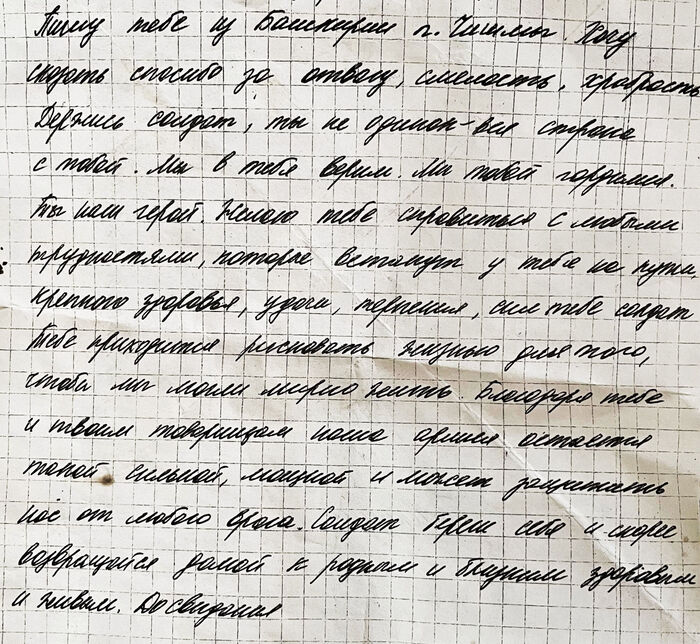 Пишу тебе из Башкирии г. Чишмы. Хочу
сказать спасибо за отвагу, смелость, храбрость
Держись солдат, ты не одинок-вся страна
с тобой. Мы в тебя верим. Мы тобой гордимся.
Ты наш герой. Желаю тебе справиться с любыми
трудностями, которые встанут у тебя на пути,
крепкого здоровья, удачи, терпения, сил тебе солдат
Тебе приходится рисковать жизнью для того,
чтобы мы могли мирно жить. Благодаря тебе
и твоим товарищам наша армия остается
такой сильной, мощной и может защитить
нас от любого врага. Солдат береги себя и скорее
возвращайся домой к родным и близким здоровым
и живым. Досвидания